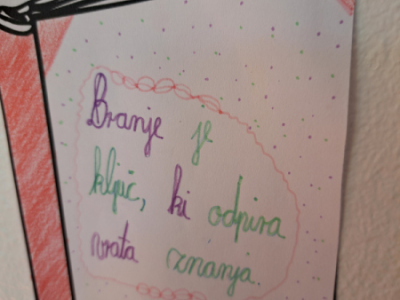 Branje je
ključ, ki odpira
vrata znanja.